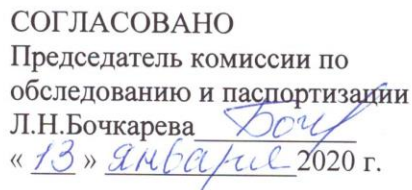 СОГЛАСОВАНО
Председатель комиссии по
обследованию и паспортизации
Л.Н.Бочкарева Боч
« 13 » января 2020 г.